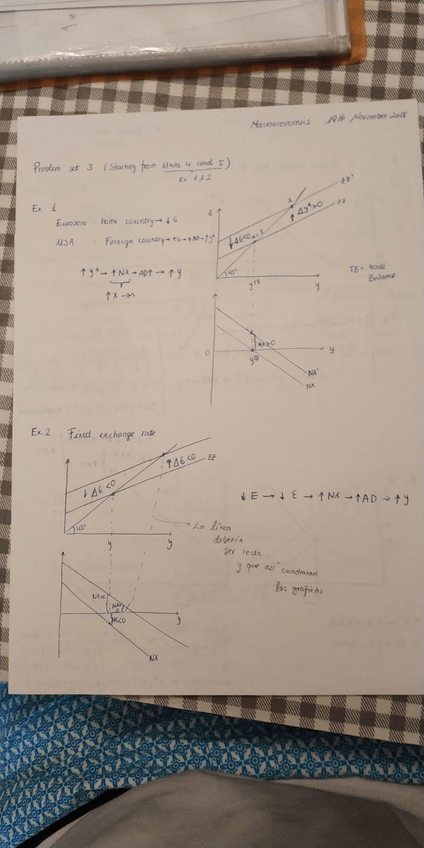 Macroeconomics 19th November 2018
Problem set 3 (Starting from Units 4 and 5)
Ex 1 & 2
Ex. 1
Eurozone: home country → ↓ G
USA : Foreign country → ↑G → ↑AD → ↑Y*
↑ Y* → ↑ NX → AD↑ → ↑ Y
↑ X
Z
ZZ'
ZZ
↑ ΔY*>0
↓ ΔG<0
45°
Y^TB
Y
TB = trade
Balance
0
NX>0
Y^TB
Y
NX'
NX
Ex. 2 Fixed exchange rate
↓ ΔG<0
↑ ΔE<0
ZZ
45°
Y
Y
↓ E → ↓ Ɛ → ↑ NX → ↑ AD → ↑ Y
La línea
debería
ser recta
y que así cuadraran
las gráficas
NX<0
Y
NX